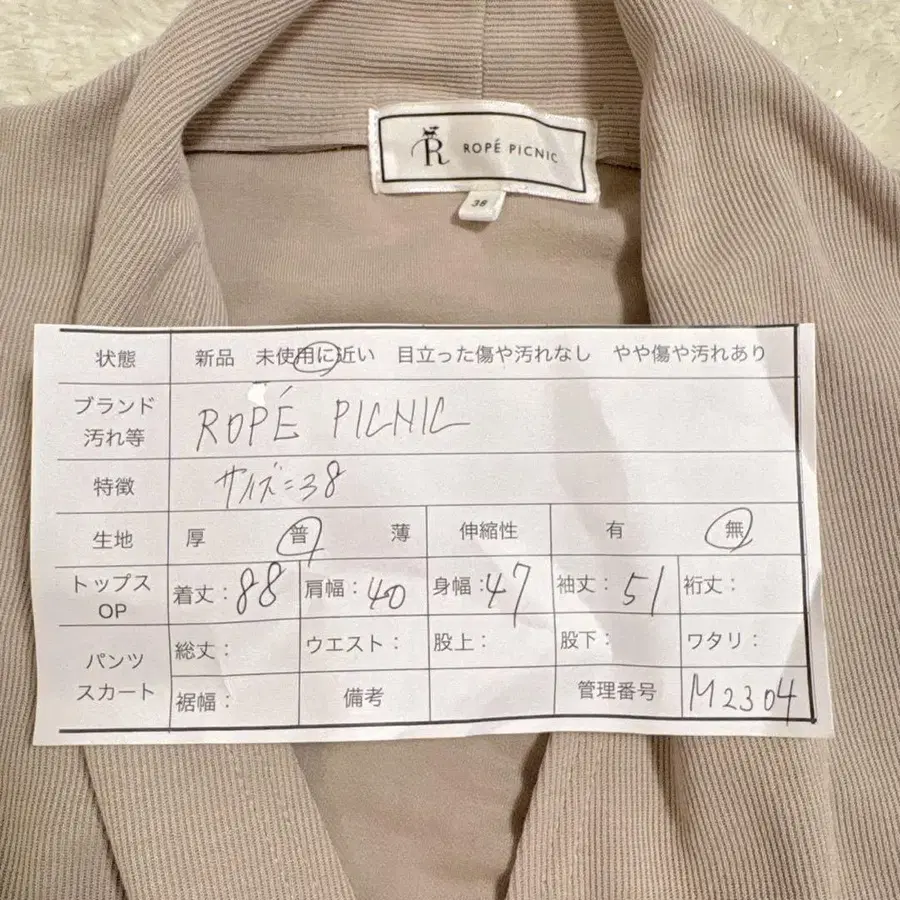 R ROPÉ PICNIC
38
状態 新品 未使用に近い 目立った傷や汚れなし やや傷や汚れあり
ブランド
汚れ等
ROPÉ PICNIC
特徴 サイズ=38
生地 厚 普 薄 伸縮性 有 無
トップス
OP
着丈:88 肩幅:40 身幅:47 袖丈:51 裄丈:
パンツ
スカート
総丈: ウエスト: 股上: 股下: ワタリ:
裾幅: 備考 管理番号 M2304